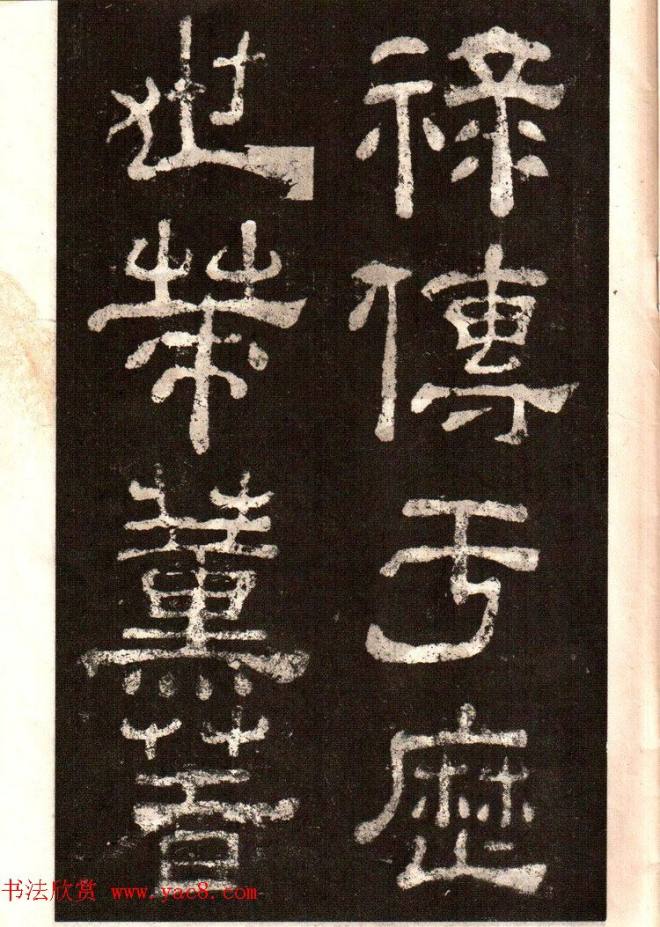 祿傳于歷
世策薰著
书法欣赏 www.yac8.com